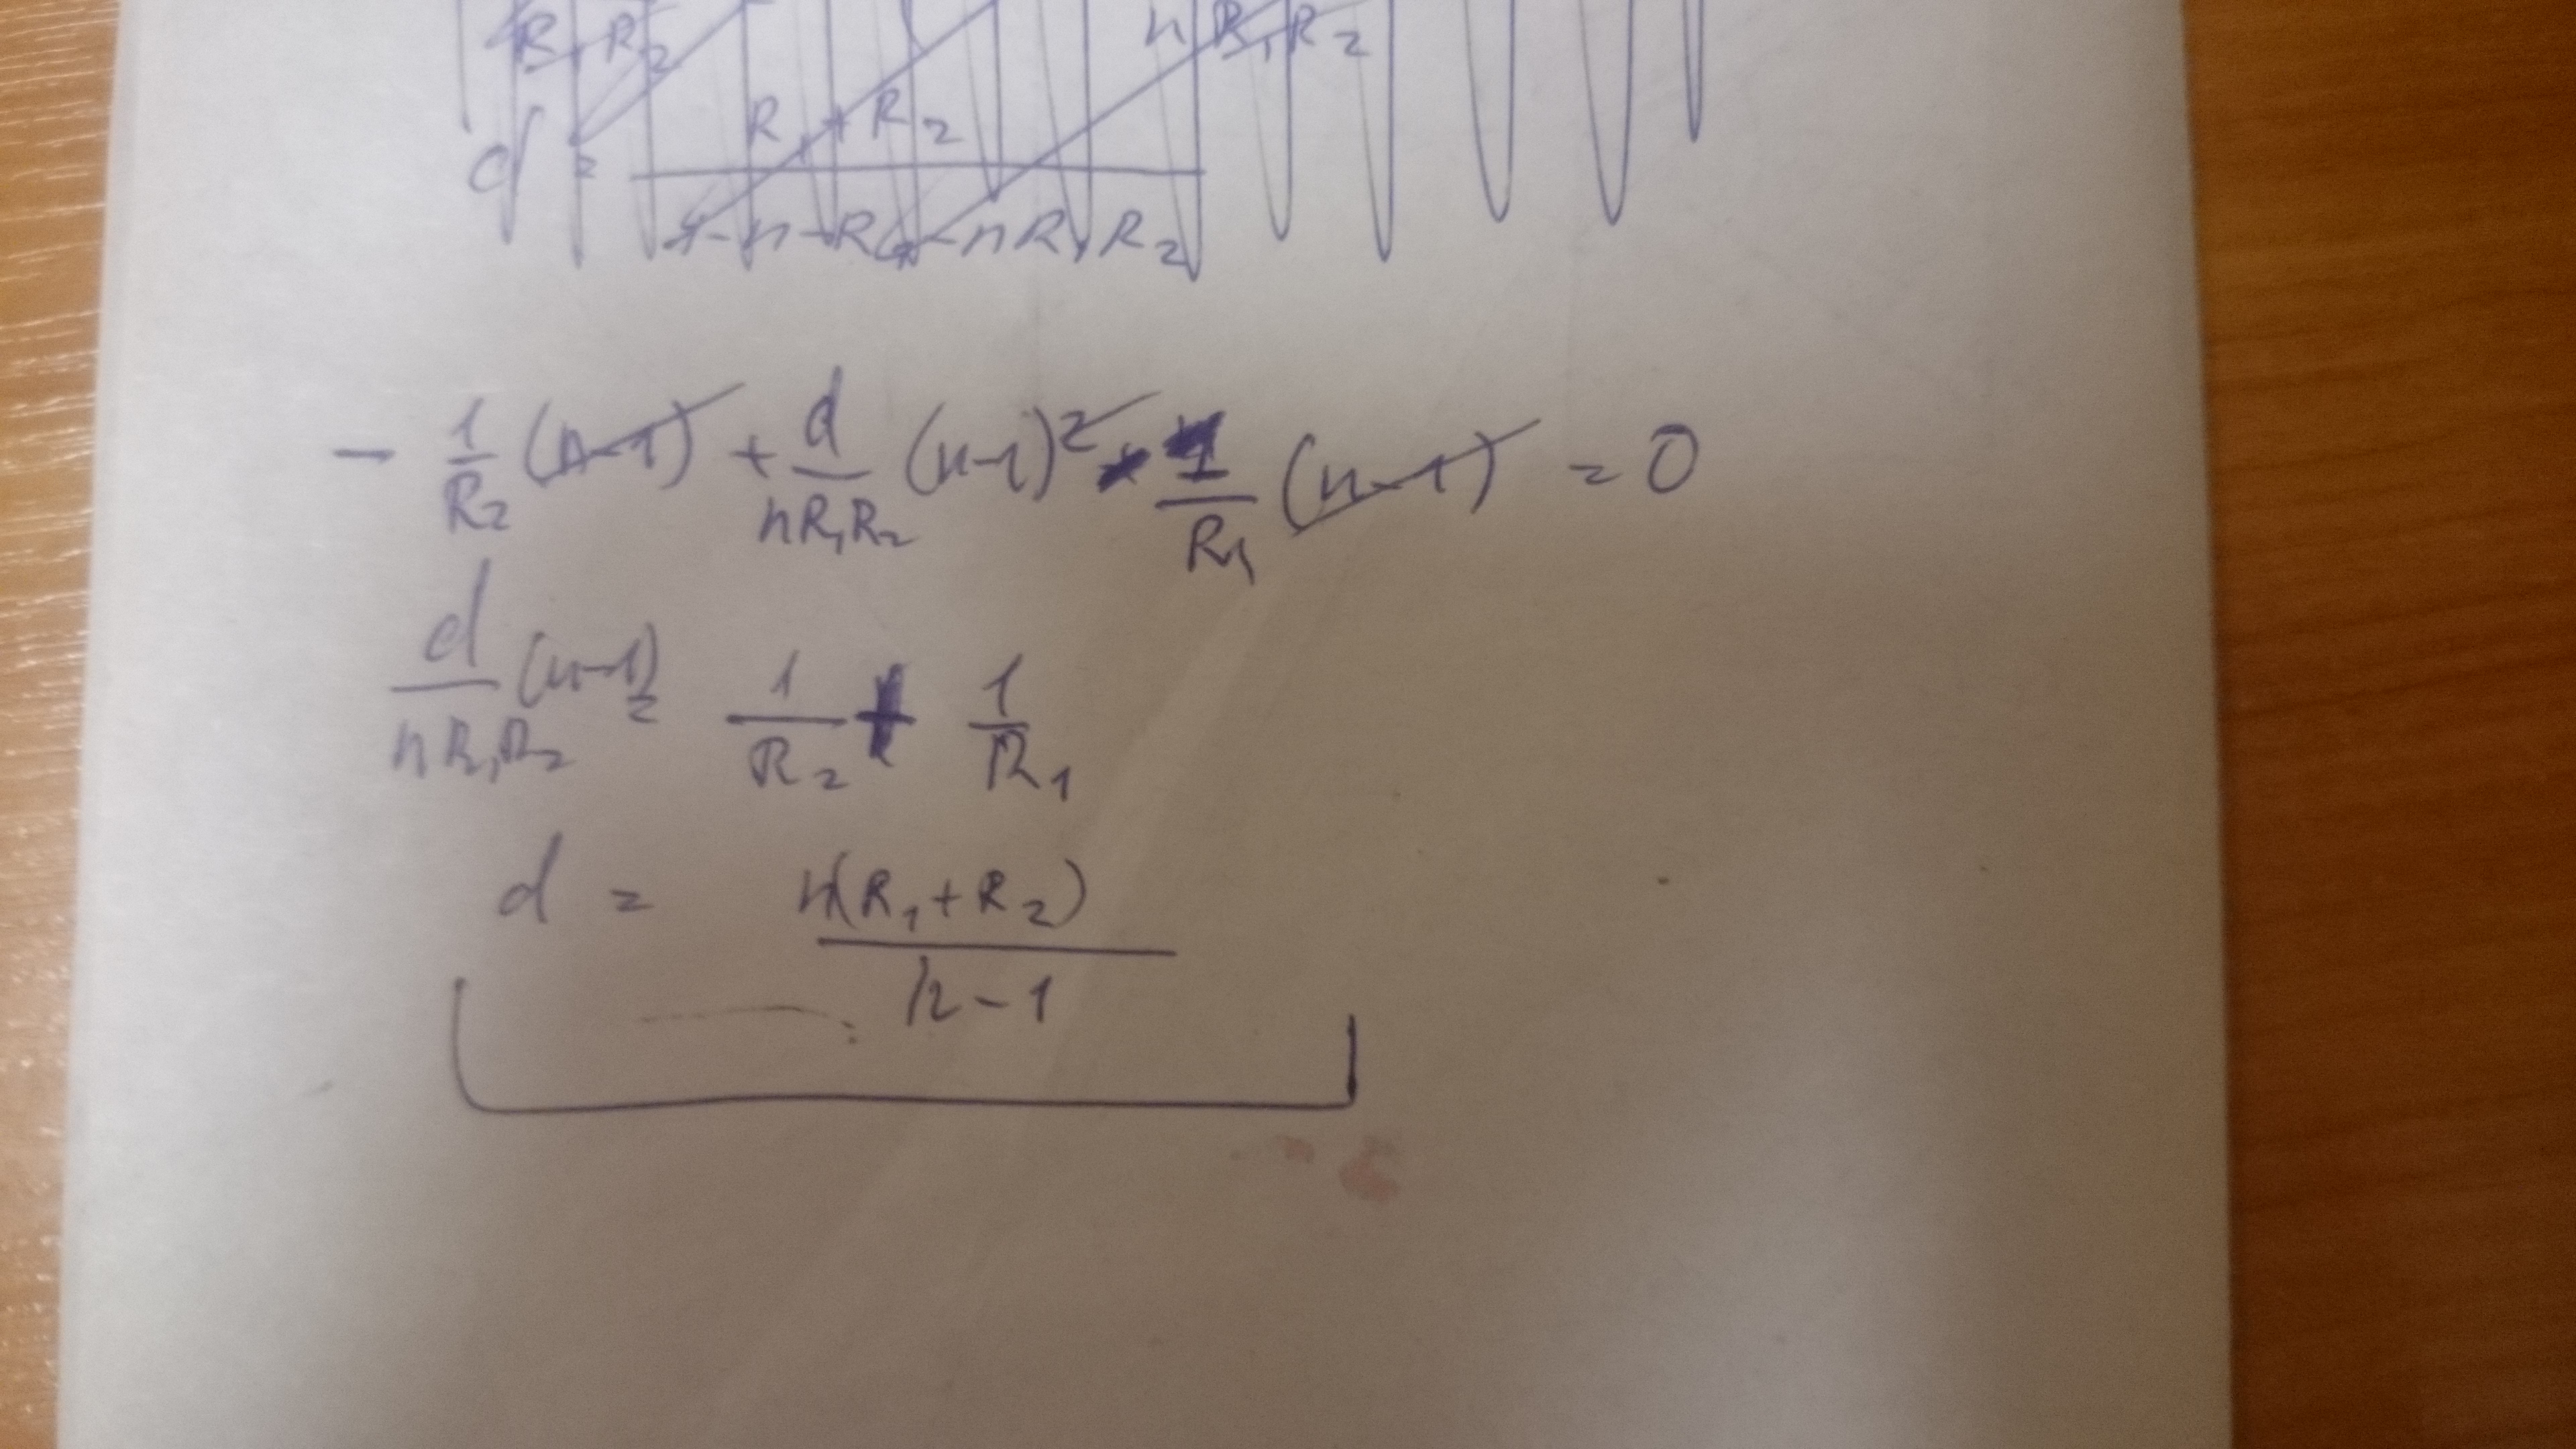 R₁+R₂ n R₁R₂
d = R₁+R₂ / -nR₁R₂
- 1/R₂ (n-1) + d/nR₁R₂ (n-1)² - 1/R₁ (n-1) = 0
d/nR₁R₂ (n-1) = 1/R₂ + 1/R₁
d = n(R₁+R₂) / n-1